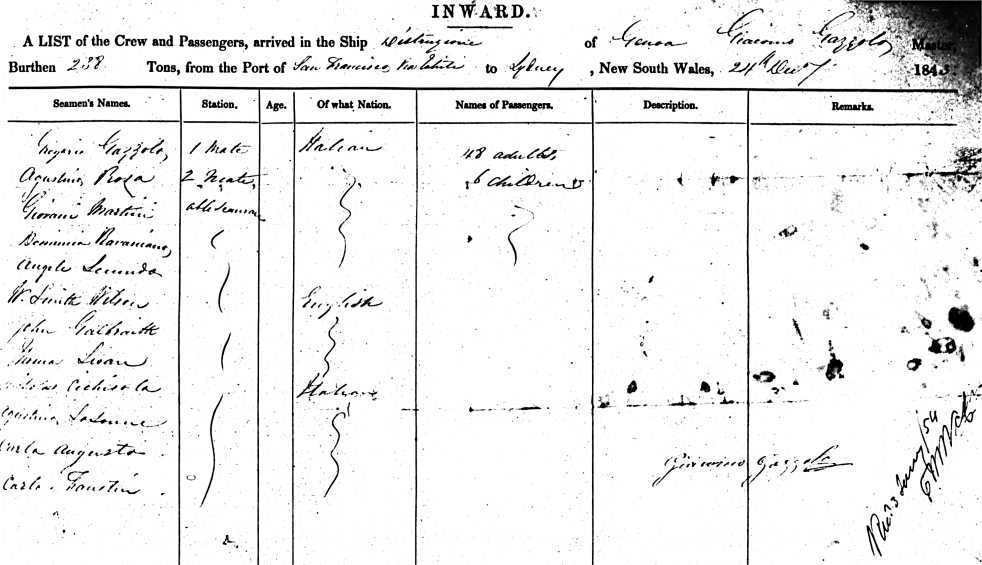 INWARD.
A LIST of the Crew and Passengers, arrived in the Ship Distinzione of Genoa Giacomo Gazzolo, Master,
Burthen 238 Tons, from the Port of San Francisco, via Tahiti to Sydney, New South Wales, 24th Decr 184
Seamen's Names. Station. Age. Of what Nation. Names of Passengers. Description. Remarks.
Gregorio Gazzolo, 1 Mate Italian 48 adults,
Agustino Rosa 2 Mate, 6 Children
Giovani Martini able seaman
Domenico
Angelo Secundo
W. Smith Wilson English
John Galbraith
Thomas Swan
Cichisola Italian
Agustino
Carlo Augusto
Giacomo Gazzolo
Carlo Faustin
/54